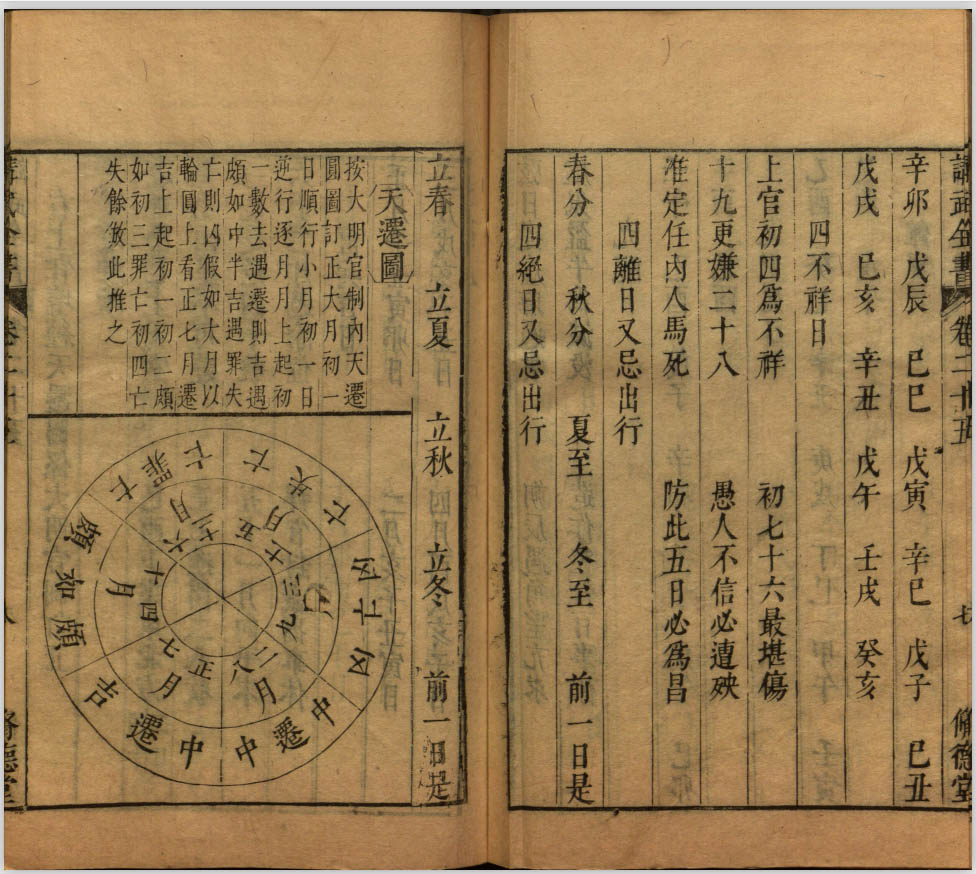 講武全書 卷二十五 七 脩德堂
辛卯 戊辰 己巳 戊寅 辛巳 戊子 己丑
戊戌 己亥 辛丑 戊午 壬戌 癸亥
四不祥日
上官初四爲不祥 初七十六最堪傷
十九更嫌二十八 愚人不信必遭殃
准定任內人馬死 防此五日必爲昌
四離日又忌出行
春分 秋分 夏至 冬至 前一日是
四絕日又忌出行
立春 立夏 立秋 立冬 前一日是
天遷圖
按大明官制內天遷
圓圖訂正大月初一
日順行小月初一日
逆行逐月月上起初
一數去遇遷則吉遇
頗如中半吉遇罪失
亡則凶假如大月以
輪圓上看正七月遷
吉上起初一初二頗
如初三罪亡初四亡
失餘倣此推之
吉遷中
中遷中
凶亡凶
亡失亡
亡罪亡
頗如頗
正七月
二八月
三九月
四十月
五十一月
六十二月